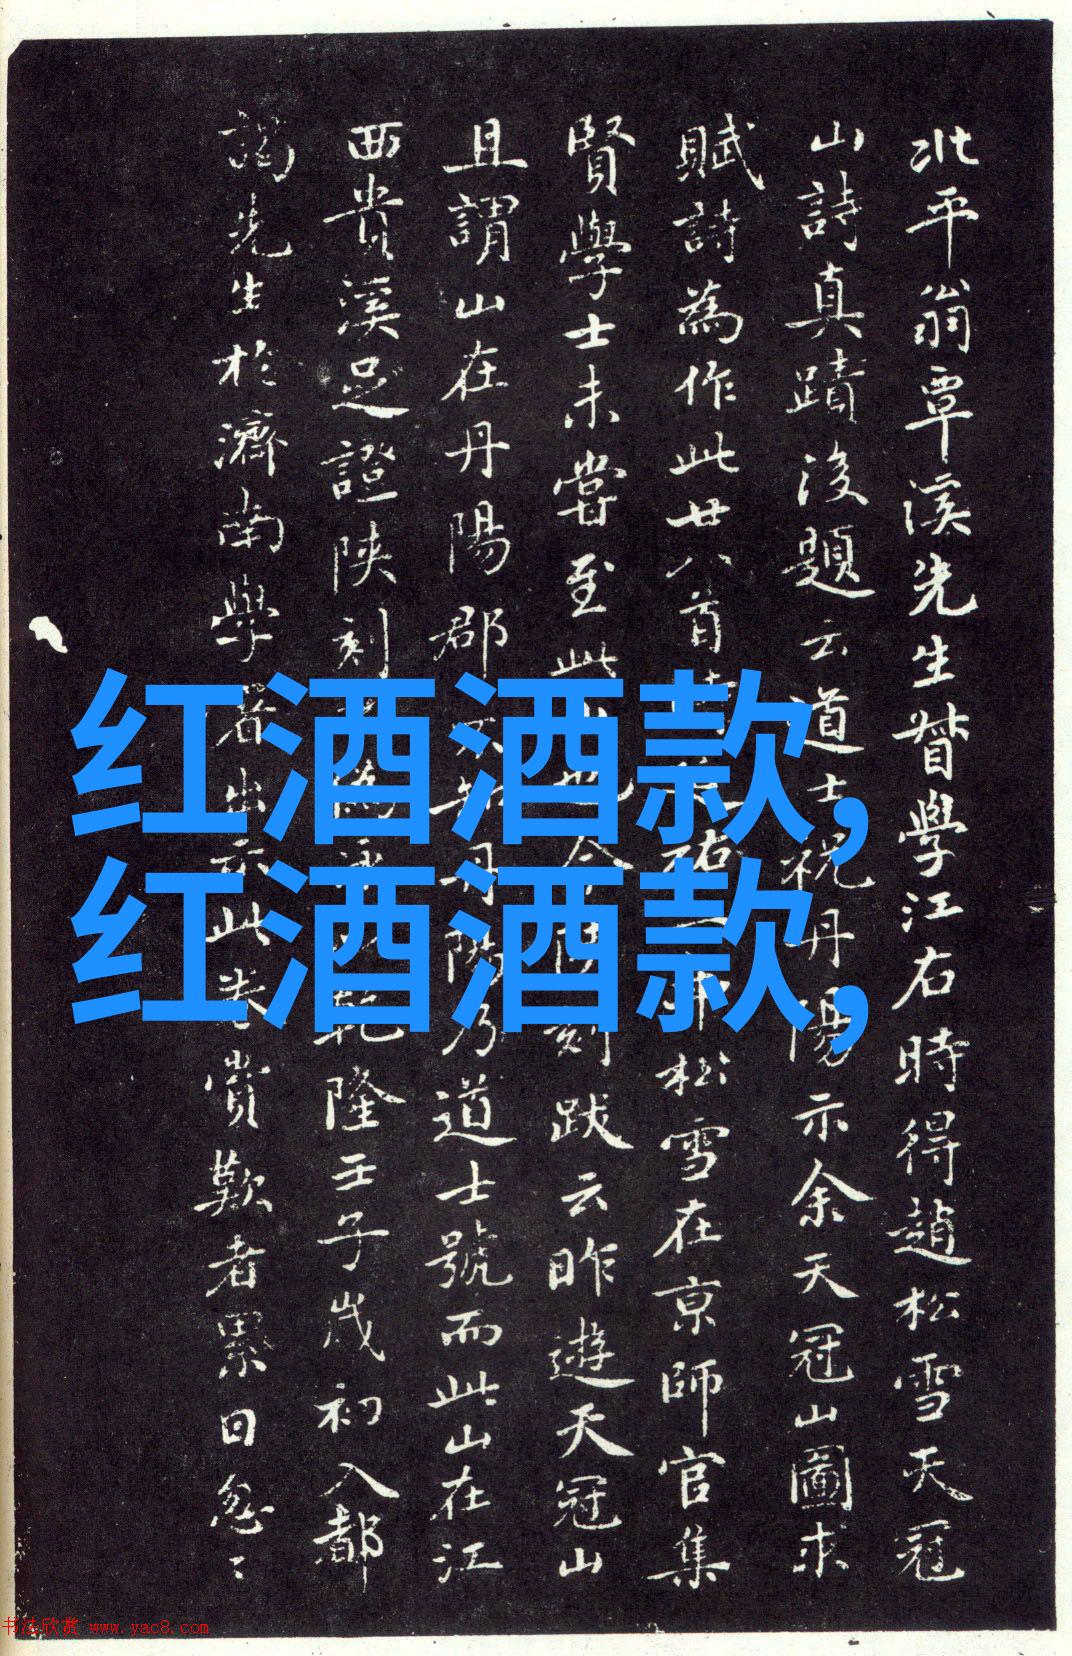 北平翁覃溪先生督學江右時得趙松雪天冠
山詩真蹟後題云道士祝丹陽示余天冠山圖求
賦詩為作此廿八首
松雪在京師官集
賢學士未嘗至此山也今
刻跋云昨遊天冠山
且謂山在丹陽郡
丹陽乃道士號而此山在江
西貴溪足證陝刻
乾隆壬子歲初入都
謁先生於濟南學署出示此卷賞歎者累日忽〻
红酒酒款,
红酒酒款,
书法欣赏 www.yac8.com